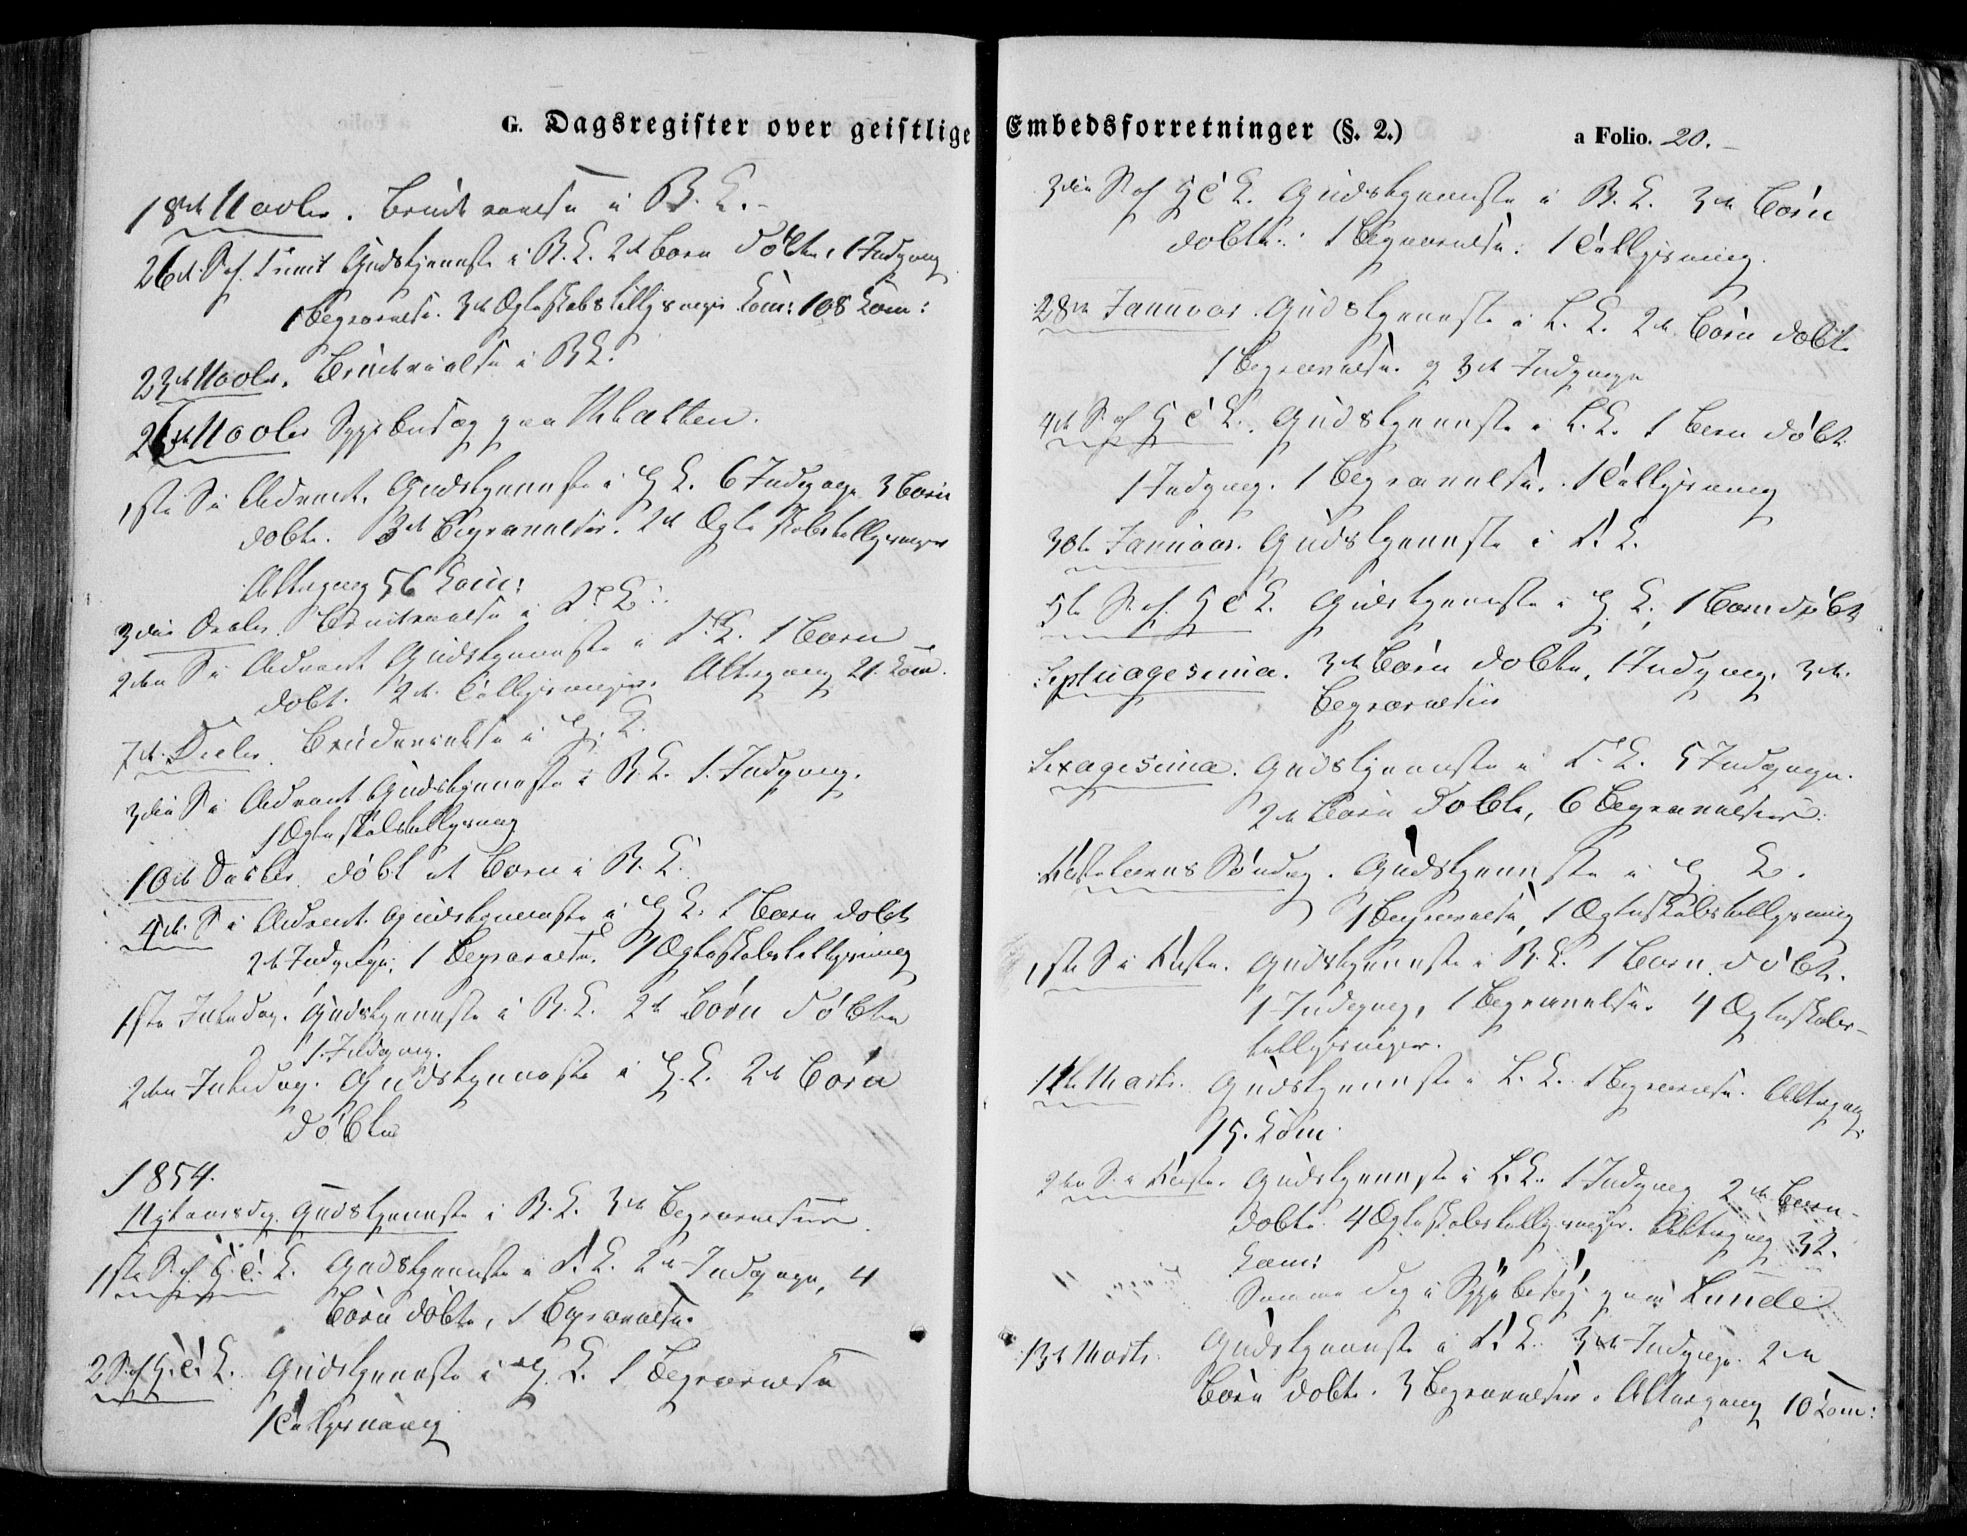 G. Dagsregister over geistlige Embedsforretninger (§. 2.)
a Folio. 20.
18de Novbr. Brudevielse i B. K.
26d. S. ef. Trinit Gudstjeneste i B. K. 2de Børn døbte, 1 Indgang
1 Begravelse. 3de Ægteskabstillysninger 108 Com:
23de Novbr. Brudevielse i B K.
Novbr Sygebesøg paa
1ste S. i Advent. Gudstjeneste i H K. 6 Indgange 3 Børn
døbte. 3de Begravelser. 2de Ægteskabstillysninger
Altergang 56 Com:
3die Decbr. Brudevielse i K.
2den S. i Advent Gudstjeneste i K. 1 Barn
døbt. 2de Tillysninger. Altergang 21 Com.
7de Decbr. Brudevielse i H. K.
3die S. i Advent Gudstjeneste i B. K. 1. Indgang.
1 Ægteskabstillysning
10de Decbr. døbt et Barn i B. K.
4de S. i Advent. Gudstjeneste i H K. 1 Barn døbt
2de Indgange, 1 Begravelse. 1 Ægteskabstillysning
1ste Juledag. Gudstjeneste i B. K. 2de Børn døbte
1. Indgang.
2den Juledag. Gudstjeneste i H. K. 2de Børn
døbte
1854.
Nytaarsdag. Gudstjeneste i B. K. 3de Begravelser.
1ste S. ef. H. 3. K. Gudstjeneste i K. 2de Indgange, 4
Børn døbte, 1 Begravelse.
2 S. ef H. 3. K. Gudstjeneste i H. K. 1 Begravelse
1 Tillysning
3die S. ef H 3 K. Gudstjeneste i B. K. 3de Børn
døbte. 1 Begravelse. 1 Tillysning.
28de Januar. Gudstjeneste i L. K. 2de Børn døbte
1 Begravelse. og 3de Indgange
4de S. ef H 3 K. Gudstjeneste i L. K. 1 Barn døbt
1 Indgang. 1 Begravelse. 1 Tillysning
30te Januar. Gudstjeneste i K.
5te S. ef. H 3 K. Gudstjeneste i H K. 1 Barn døbt
Septuagesima. 3de Børn døbte, 1 Indgang, 3de
Begravelser
Sexagesima. Gudstjeneste i K. 5 Indgange.
2de Børn døbte, 6 Begravelser.
Fastelavns Søndag. Gudstjeneste i H K.
1 Begravelse, 1 Ægteskabstillysning
1ste S i Faste. Gudstjeneste i B. K. 1 Barn døbt.
1 Indgang, 1 Begravelse. 4 Ægteskabs-
tillysninger.
Marts. Gudstjeneste i L. K. 1 Begravelse. Altergang
15. Com.
2den S. i Faste. Gudstjeneste i L. K. 1 Indgang 2de Børn
døbte. 4 Ægteskabstillysninger. Altergang 32.
Com:
Samme Dag i Sygebesøg paa Lunde.
13de Marts. Gudstjeneste i K. 3de Indgange. 2de
Børn døbte. 3 Begravelser. Altergang 10 Com: